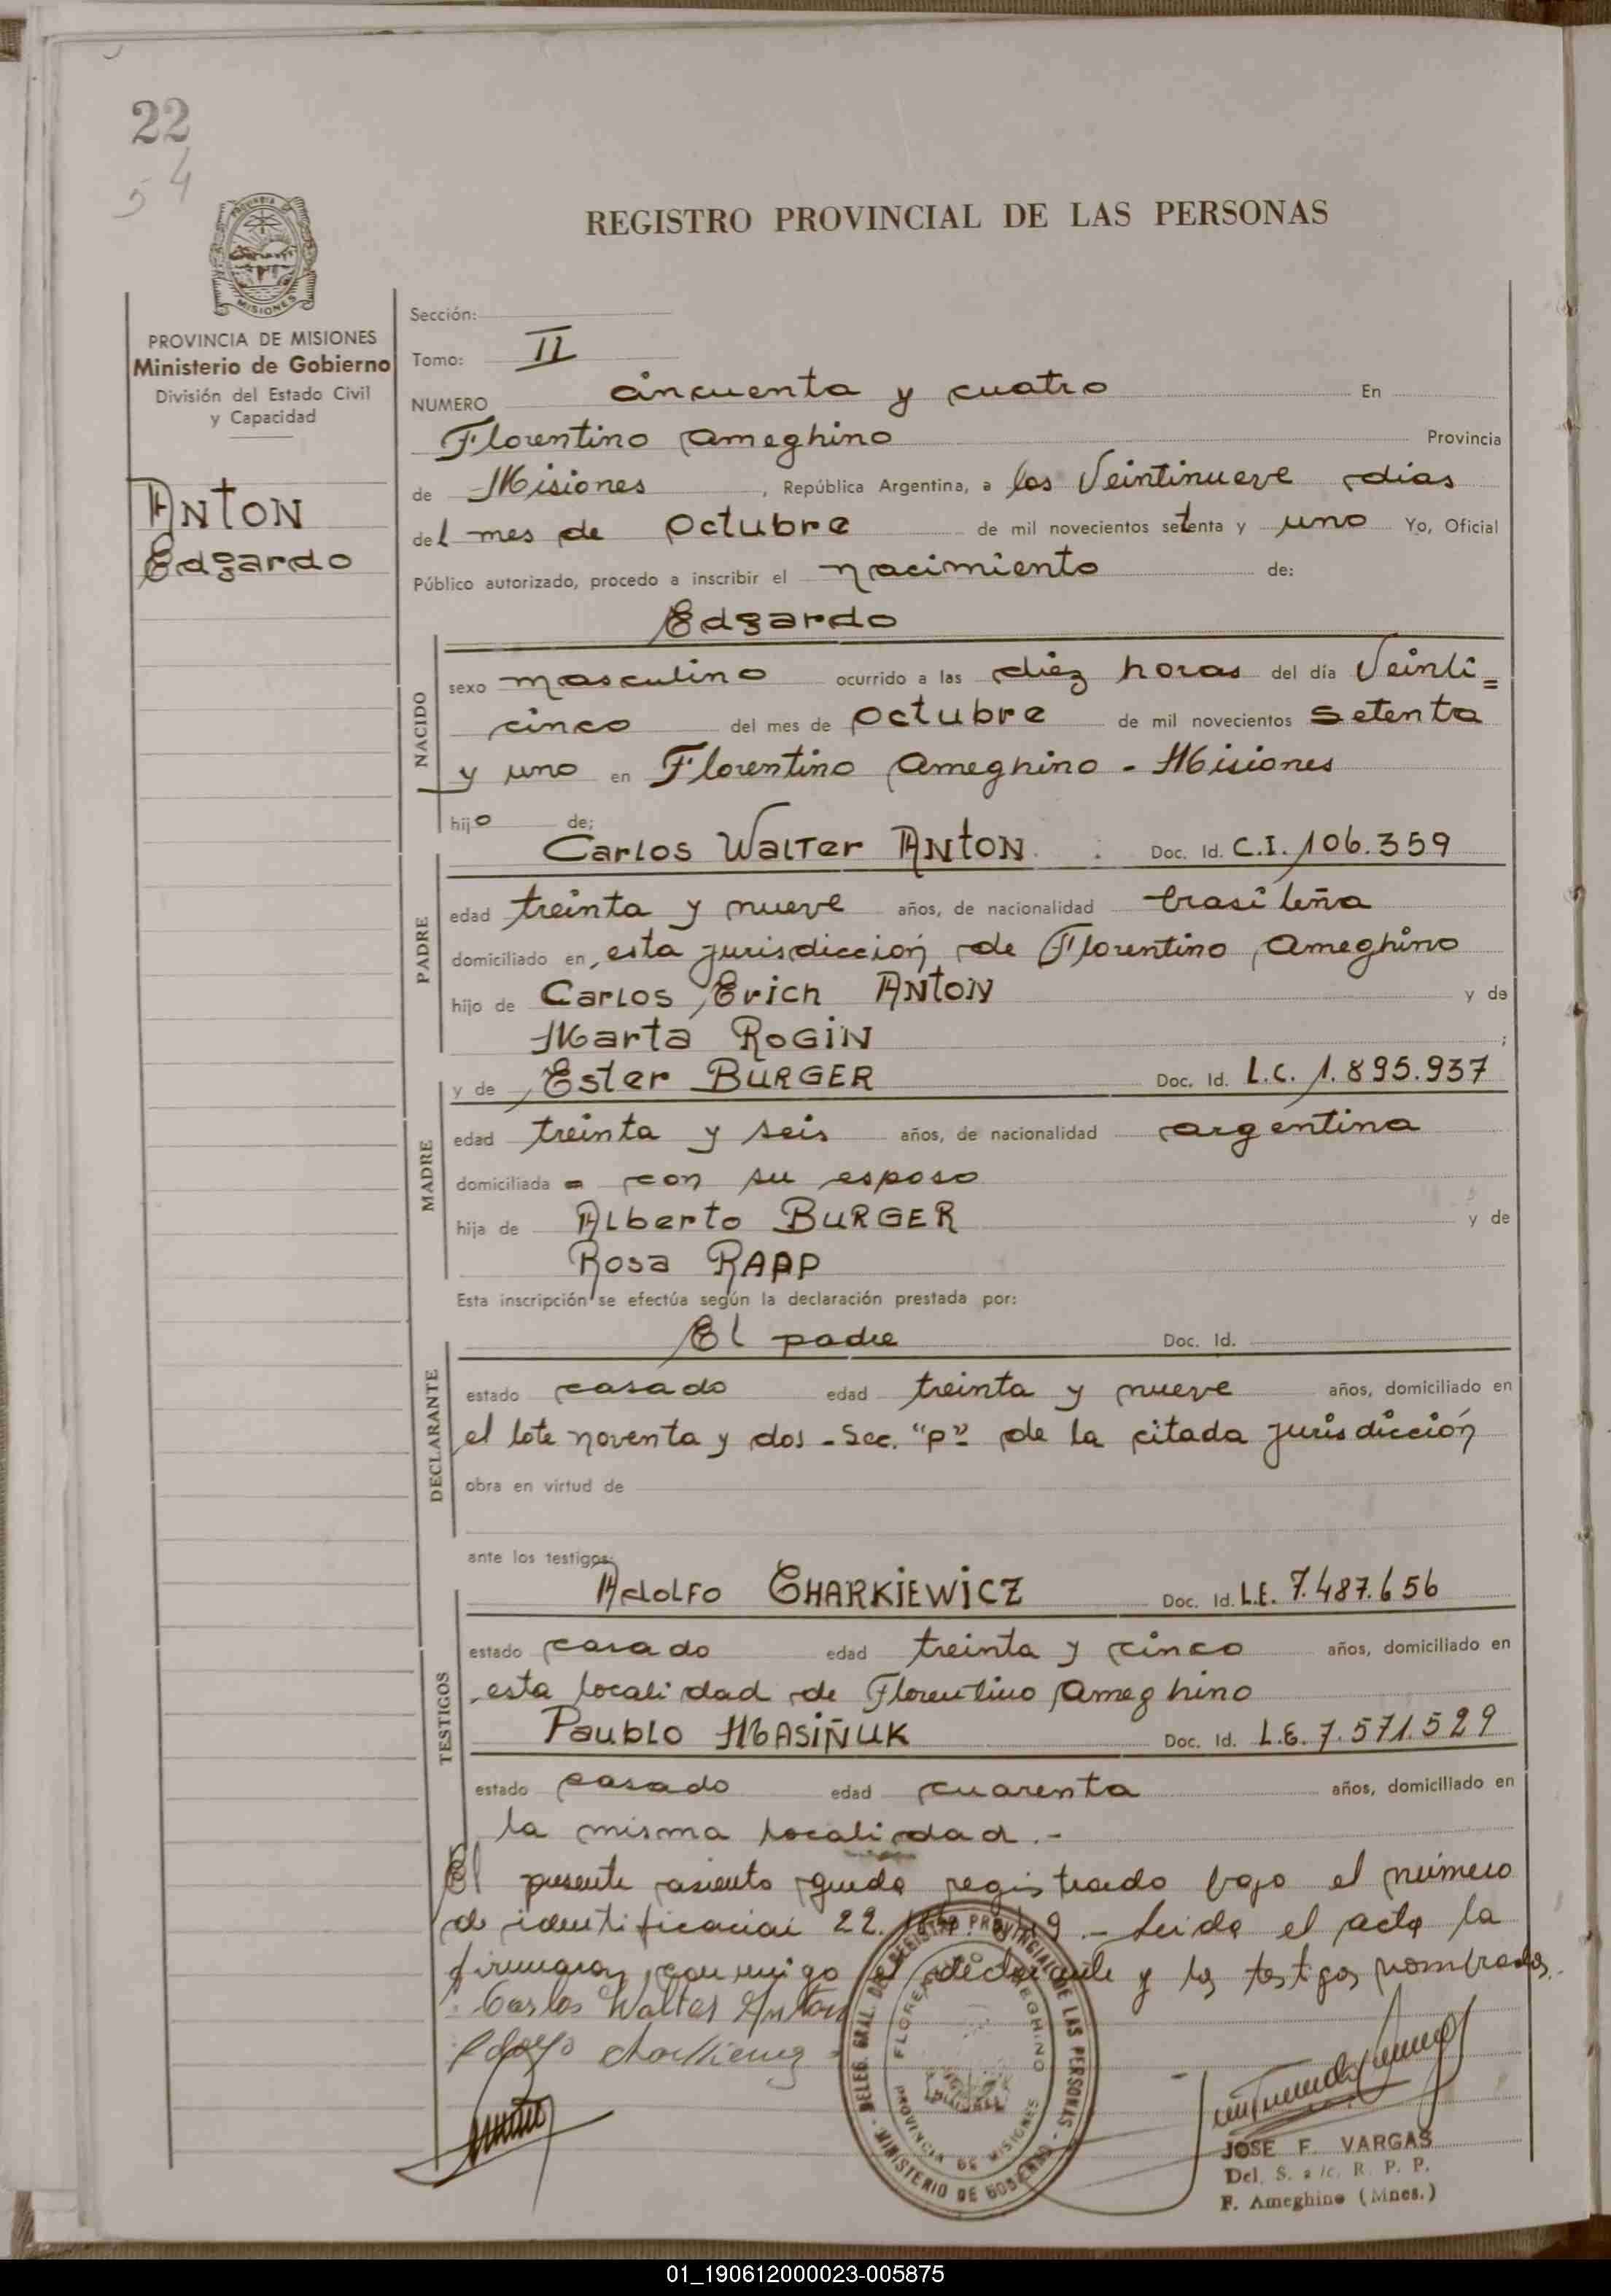 22
54
REGISTRO PROVINCIAL DE LAS PERSONAS
MISIONES
PROVINCIA DE MISIONES
Ministerio de Gobierno
División del Estado Civil
y Capacidad
ANTON
Edgardo
Sección:
Tomo: II
NUMERO cincuenta y cuatro En
Florentino Ameghino Provincia
de Misiones, República Argentina, a los Veintinueve dias
del mes de Octubre de mil novecientos setenta y uno Yo, Oficial
Público autorizado, procedo a inscribir el nacimiento de:
Edgardo
NACIDO
sexo masculino ocurrido a las diez horas del día Veinti=
cinco del mes de octubre de mil novecientos setenta
y uno en Florentino Ameghino - Misiones
hijo de;
Carlos Walter ANTON. Doc. Id. C.I. 106.359
PADRE
edad treinta y nueve años, de nacionalidad brasileña
domiciliado en esta jurisdicción de Florentino Ameghino
hijo de Carlos Erich ANTON y de
Marta ROGIN ;
y de Ester BURGER Doc. Id. L.C. 1.895.937
MADRE
edad treinta y seis años, de nacionalidad argentina
domiciliada = con su esposo
hija de Alberto BURGER y de
Rosa RAPP
Esta inscripción se efectúa según la declaración prestada por:
El padre Doc. Id.
DECLARANTE
estado casado edad treinta y nueve años, domiciliado en
el lote noventa y dos - Sec. "P" de la citada jurisdicción
obra en virtud de
ante los testigos:
Adolfo CHARKIEWICZ Doc. Id. L.E. 7.487.656
TESTIGOS
estado casado edad treinta y cinco años, domiciliado en
esta localidad de Florentino Ameghino
Paublo MASIÑUK Doc. Id. L.E. 7.571.529
estado casado edad cuarenta años, domiciliado en
la misma localidad.-
El presente asiento queda registrado bajo el número
de identificación 22. - Leida el acta la
firman conmigo el declarante y los testigos nombrados.
Carlos Walter Anton
DELEG. GRAL. DEL REGISTRO PROVINCIAL DE LAS PERSONAS - MINISTERIO DE GOBIERNO -
FLORENTINO AMEGHINO
PROVINCIA DE MISIONES
JOSE F. VARGAS
Del. S. a/c. R. P. P.
F. Ameghino (Mnes.)
01_190612000023-005875